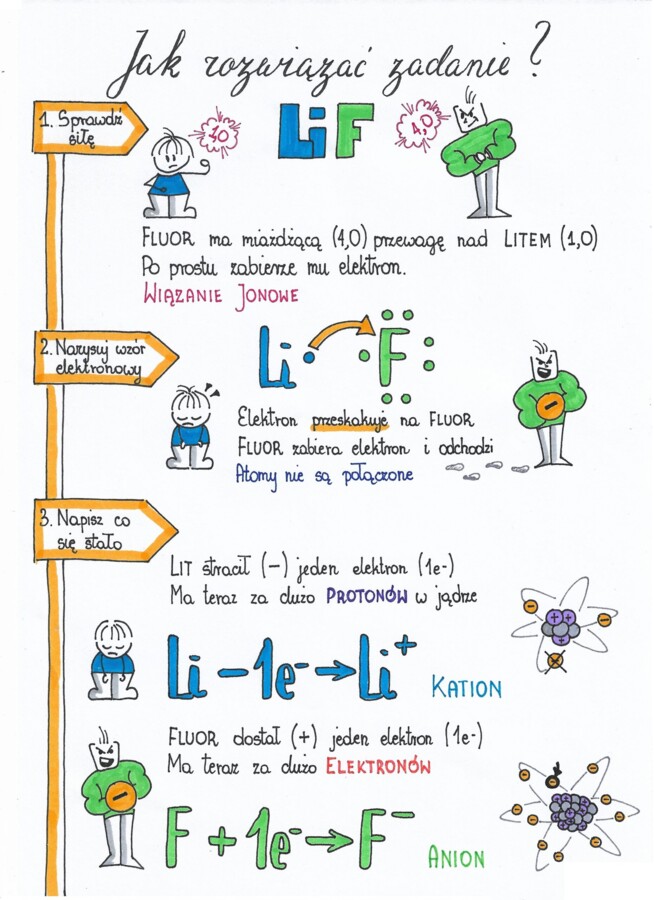 Jak rozwiązać zadanie?
1. Sprawdź
siłę
1,0
LiF
4,0
FLUOR ma miażdżącą (4,0) przewagę nad LITEM (1,0)
Po prostu zabierze mu elektron.
WIĄZANIE JONOWE
2. Narysuj wzór
elektronowy
Li F
Elektron przeskakuje na FLUOR
FLUOR zabiera elektron i odchodzi
Atomy nie są połączone
3. Napisz co
się stało
LIT stracił (-) jeden elektron (1e-)
Ma teraz za dużo PROTONÓW w jądrze
Li - 1e⁻ → Li⁺ KATION
FLUOR dostał (+) jeden elektron (1e-)
Ma teraz za dużo ELEKTRONÓW
F + 1e⁻ → F⁻ ANION